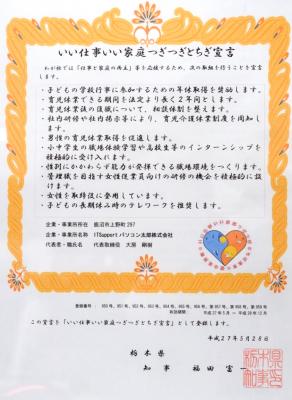 いい仕事いい家庭つぎつぎとちぎ宣言
わが社では「仕事と家庭の両立」等を応援するため、次の取組を行うことを宣言
します。
・子どもの学校行事に参加するための年休取得を奨励します。
・育児休業できる期間を法定より長く2年間とします。
・育児休業後の復職について、相談体制を整えます。
・社内研修や社内掲示等により、育児介護休業制度を周知し
ます。
・男性の育児休業取得を促進します。
・小中学生の職場体験学習や高校生等のインターンシップを
積極的に受け入れます。
・性別にかかわらず能力が発揮できる職場環境をつくります。
・管理職を目指す女性従業員向けの研修の機会を積極的に設
けます。
・女性を取締役に登用しています。
・子どもの長期休み時のテレワークを推奨します。
企業・事業所所在 鹿沼市上野町297
企業・事業所名称 ITSupport パソコン太郎株式会社
代表者・職氏名 代表取締役 大房 剛樹
この宣言を「いい仕事いい家庭つぎつぎとちぎ宣言」として登録します。
平成27年5月28日
栃木県
知事 福田富一